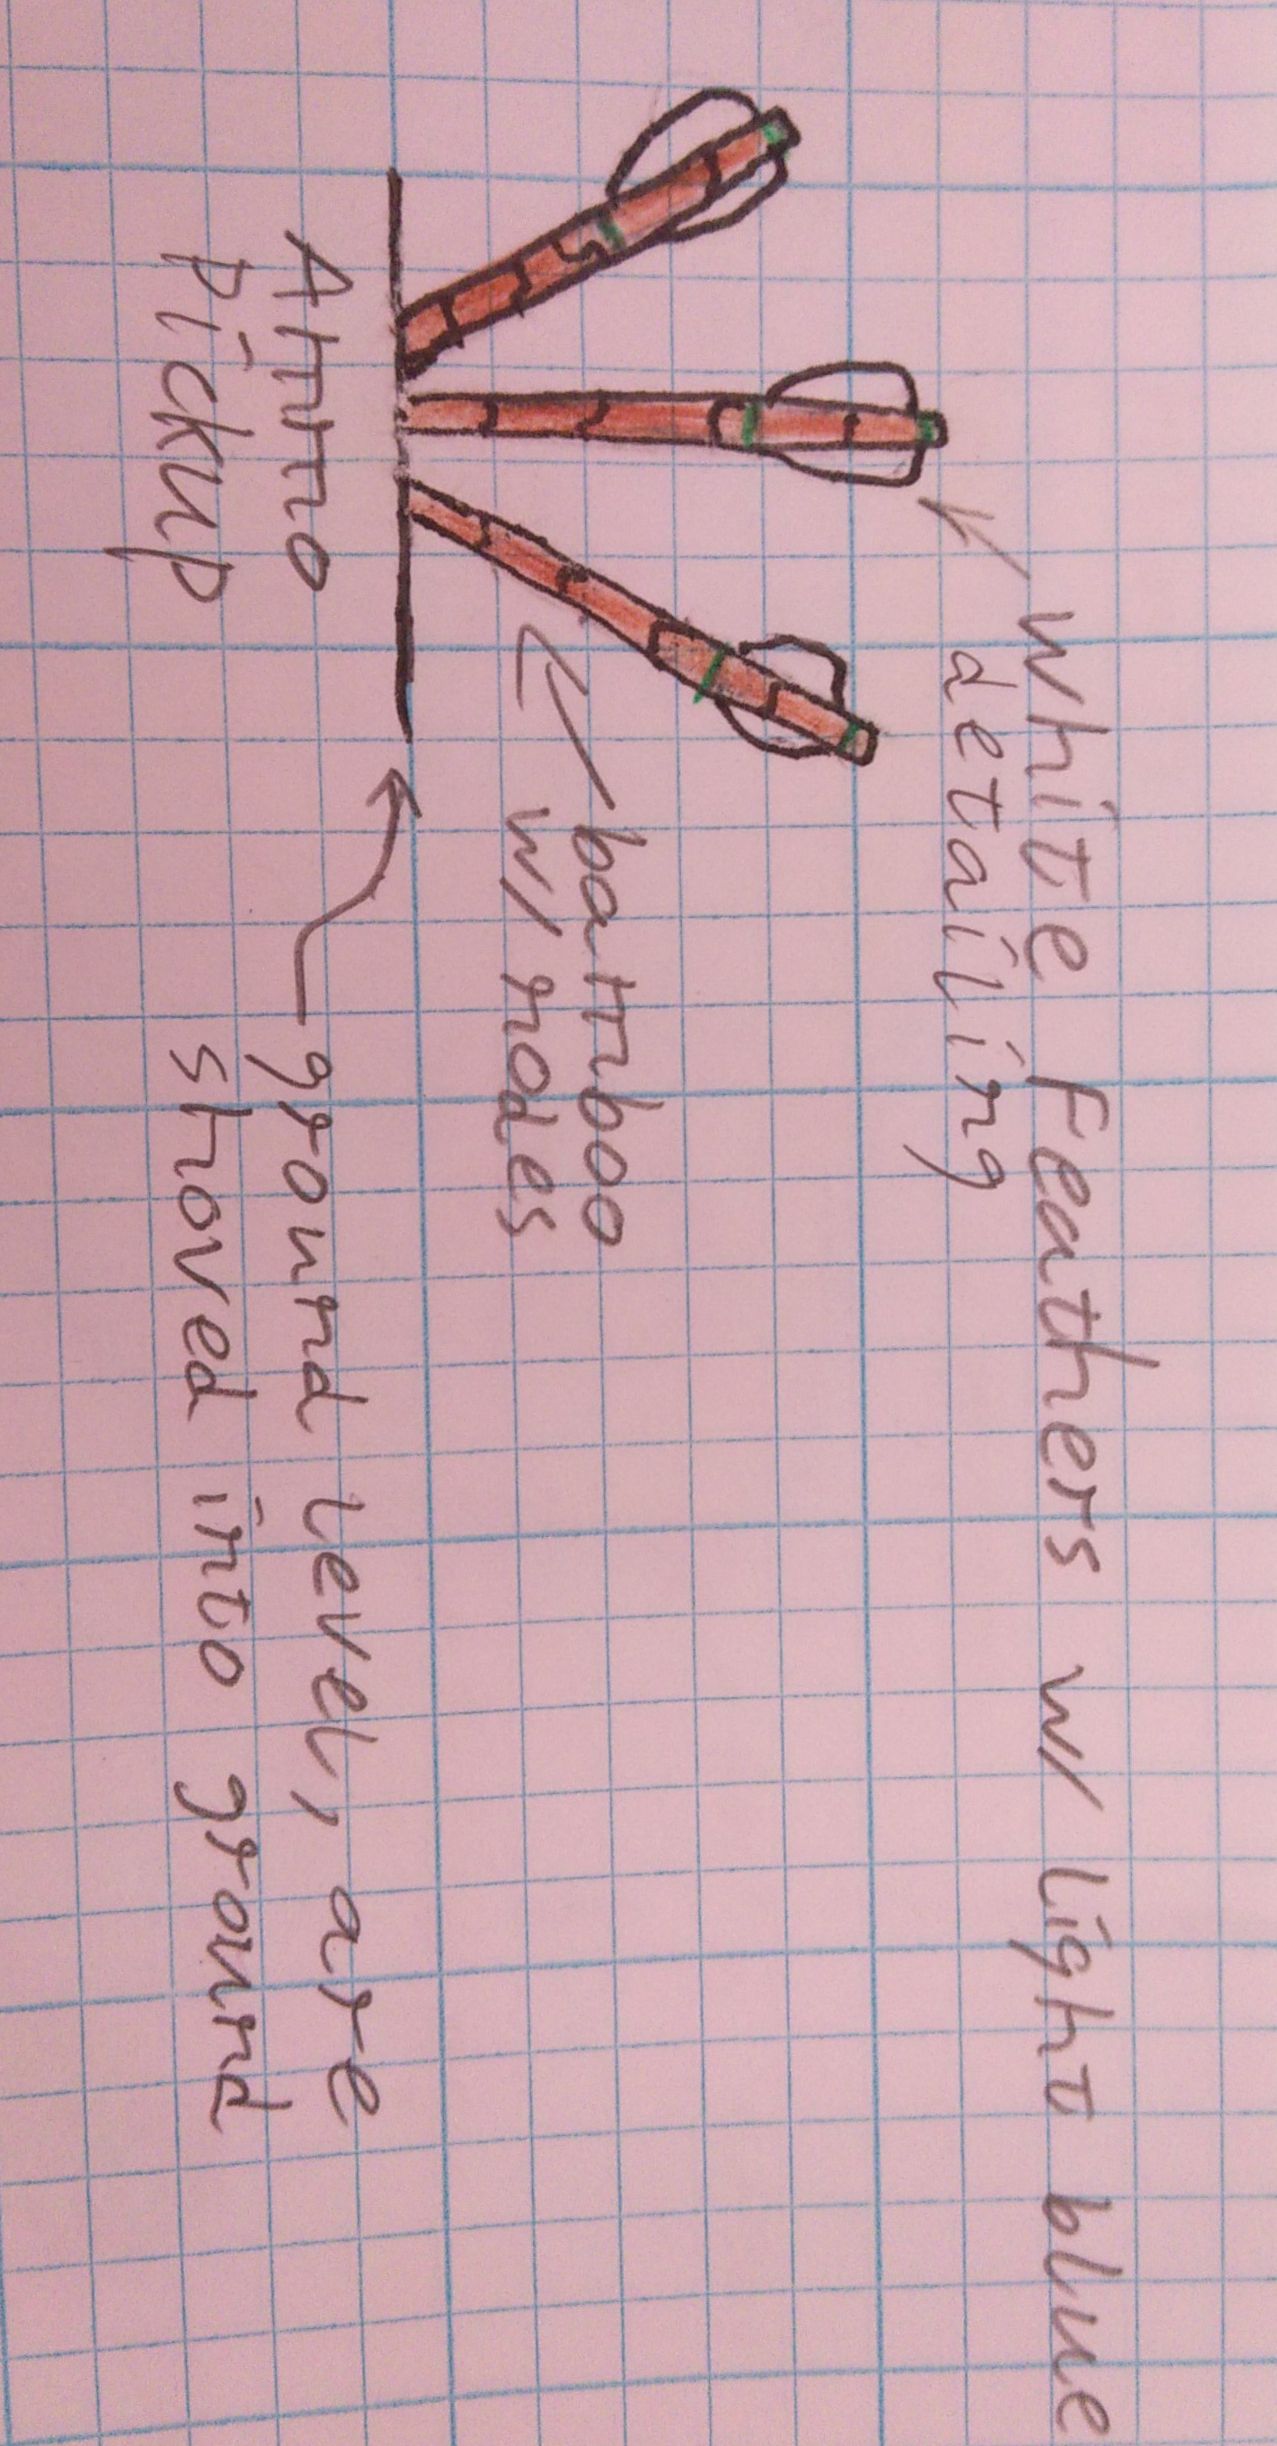 white Feathers w/ light blue
detailing
bamboo
w/ nodes
ground level, are
shoved into ground
Ammo
pickup